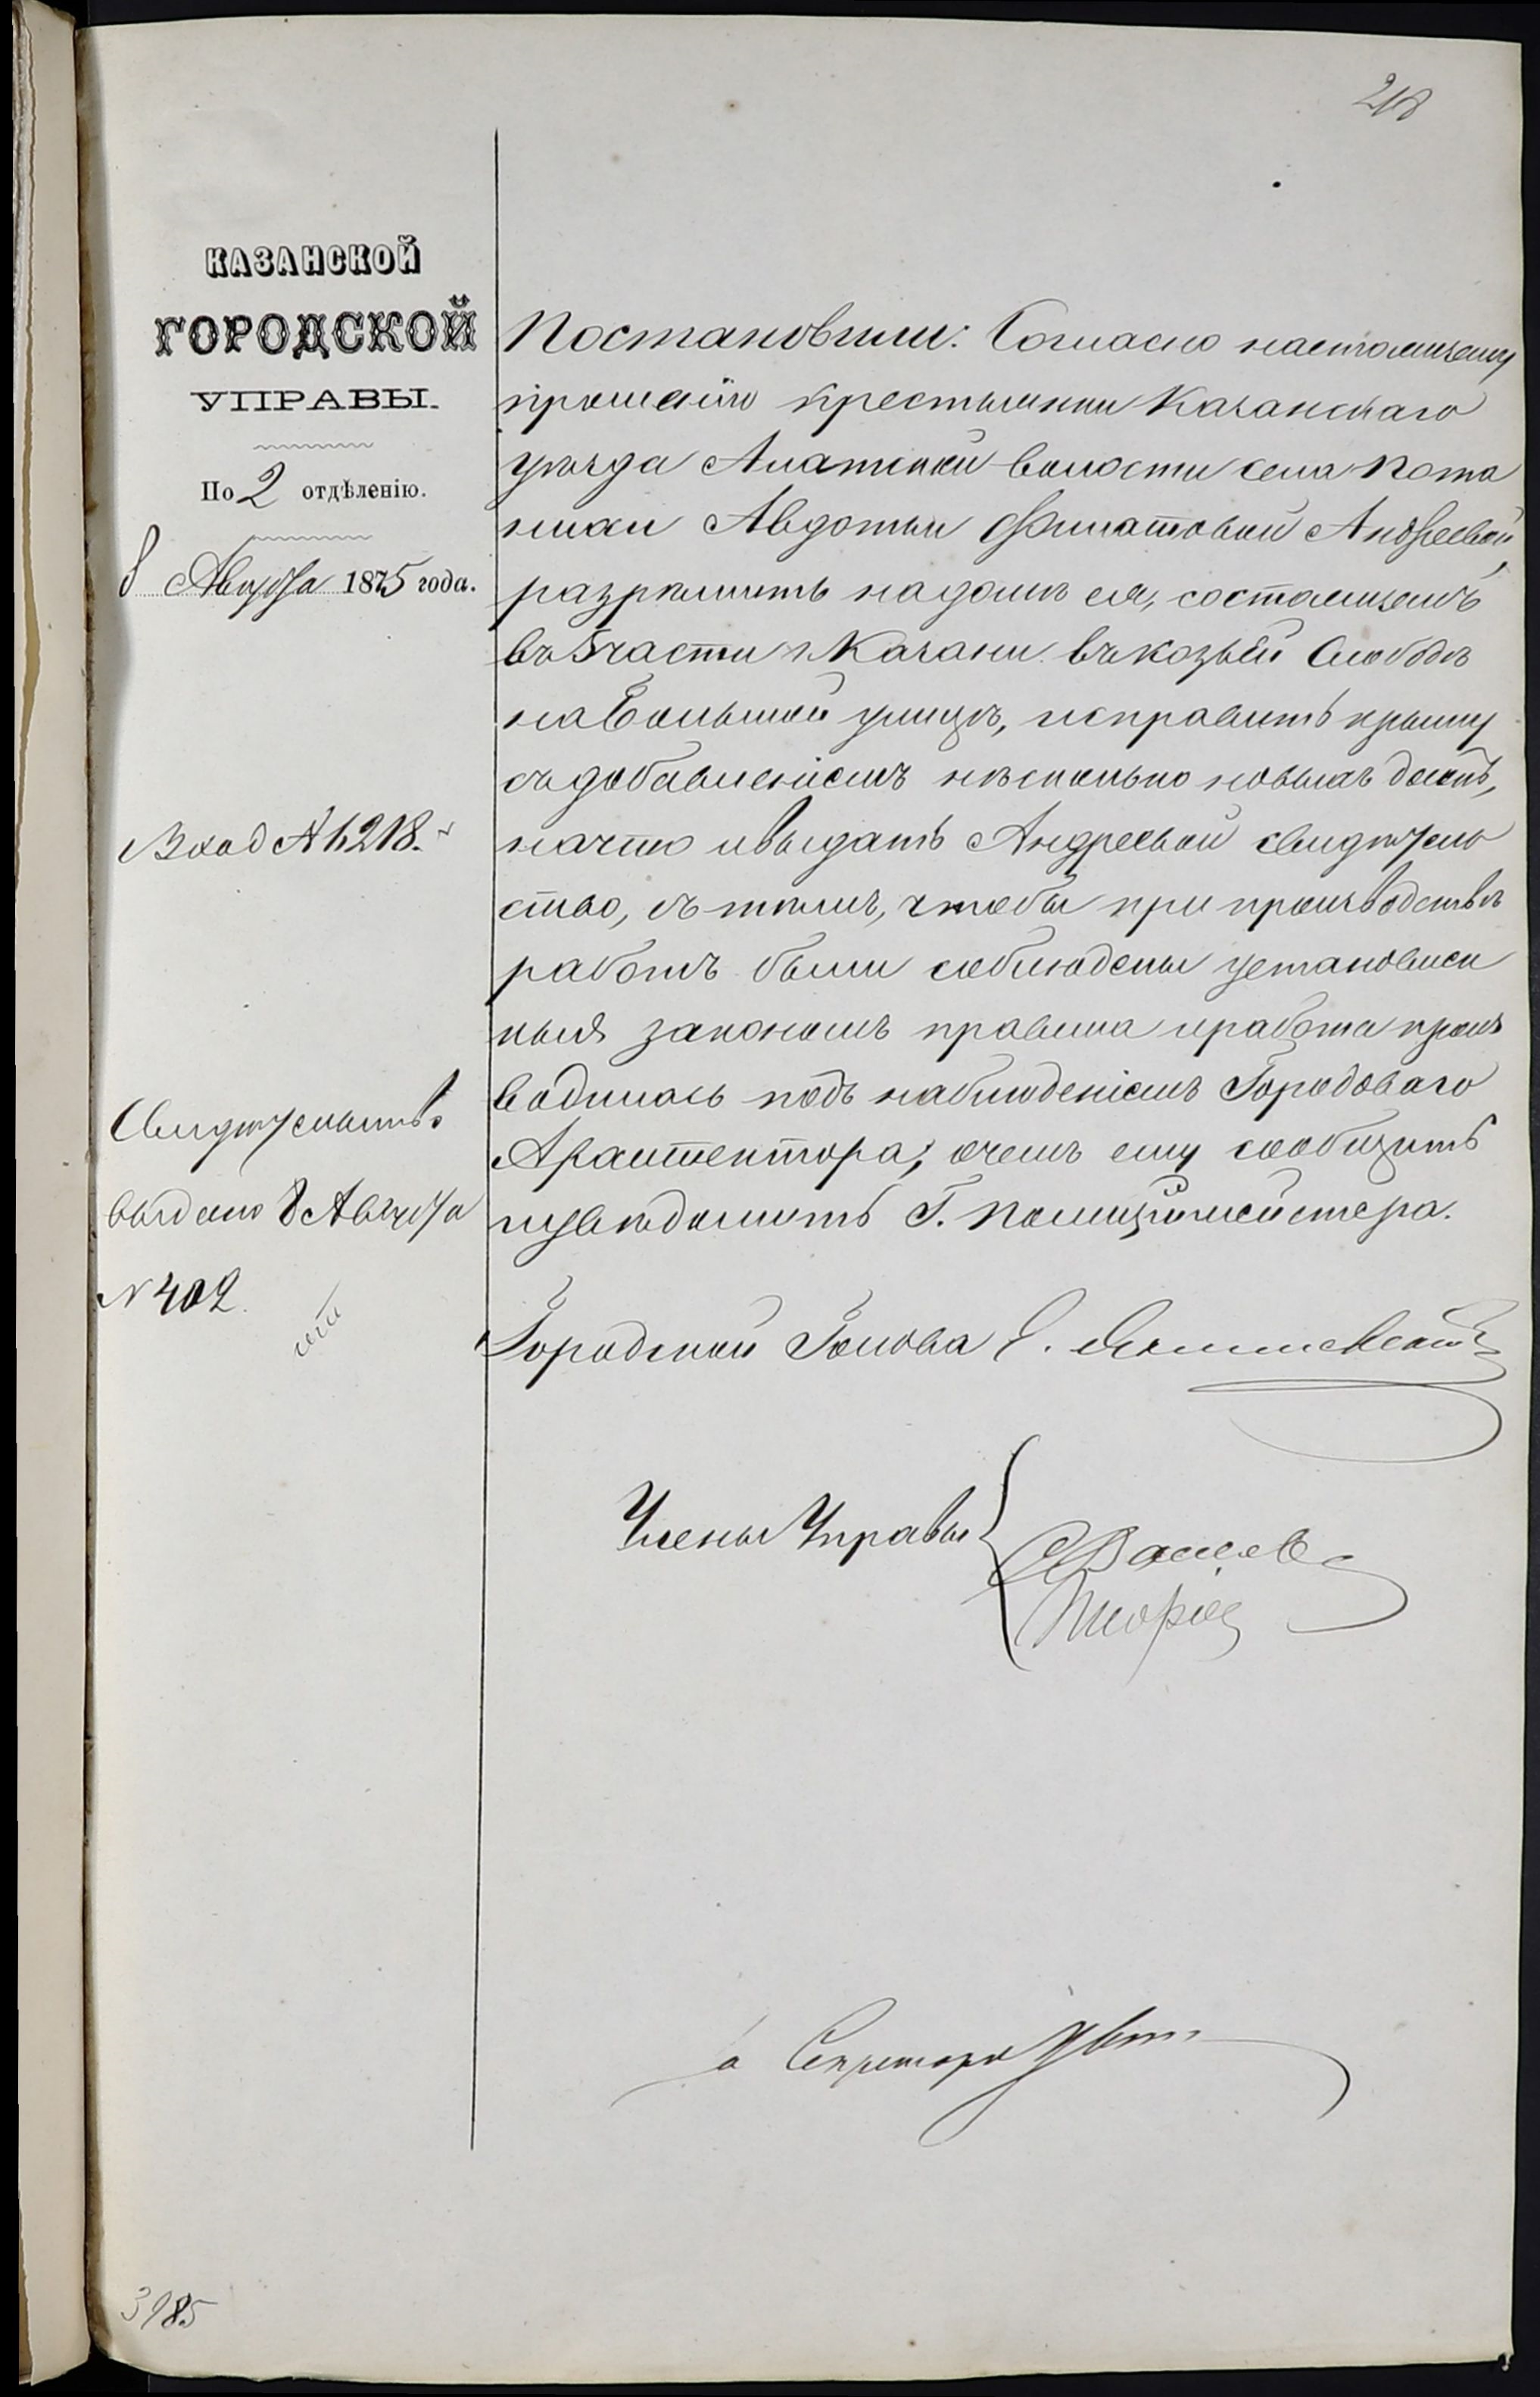 218
КАЗАНСКОЙ
ГОРОДСКОЙ
УПРАВЫ.
По 2 отдѣленію.
8 Августа 1875 года.
Вход № 1218.
Свидѣтельство
выдано 8 Августа
№ 402
Постановили: Согласно настоящему
прошенію крестьянки Казанскаго
уѣзда Алатской волости села Пота
нихи Авдотьи Филатовой Андреевой,
разрѣшить на домѣ ея, состоящемъ
въ 5 части г. Казани въ козьей Слободѣ
на Большой улицѣ, исправить крышу
съ добавленіемъ нѣсколько новыхъ досокъ,
на что и выдать Андреевой свидѣтель
ство, съ тѣмъ, чтобы при производствѣ
работъ были соблюдены установлен
ныя закономъ правила и работа произ
водилась подъ наблюденіемъ Городоваго
Архитектора, о чемъ ему сообщить
и увѣдомить Г. Полиціймейстера.
Городской Голова Э. Янишевскій
Члены Управы
Секретаря
3985